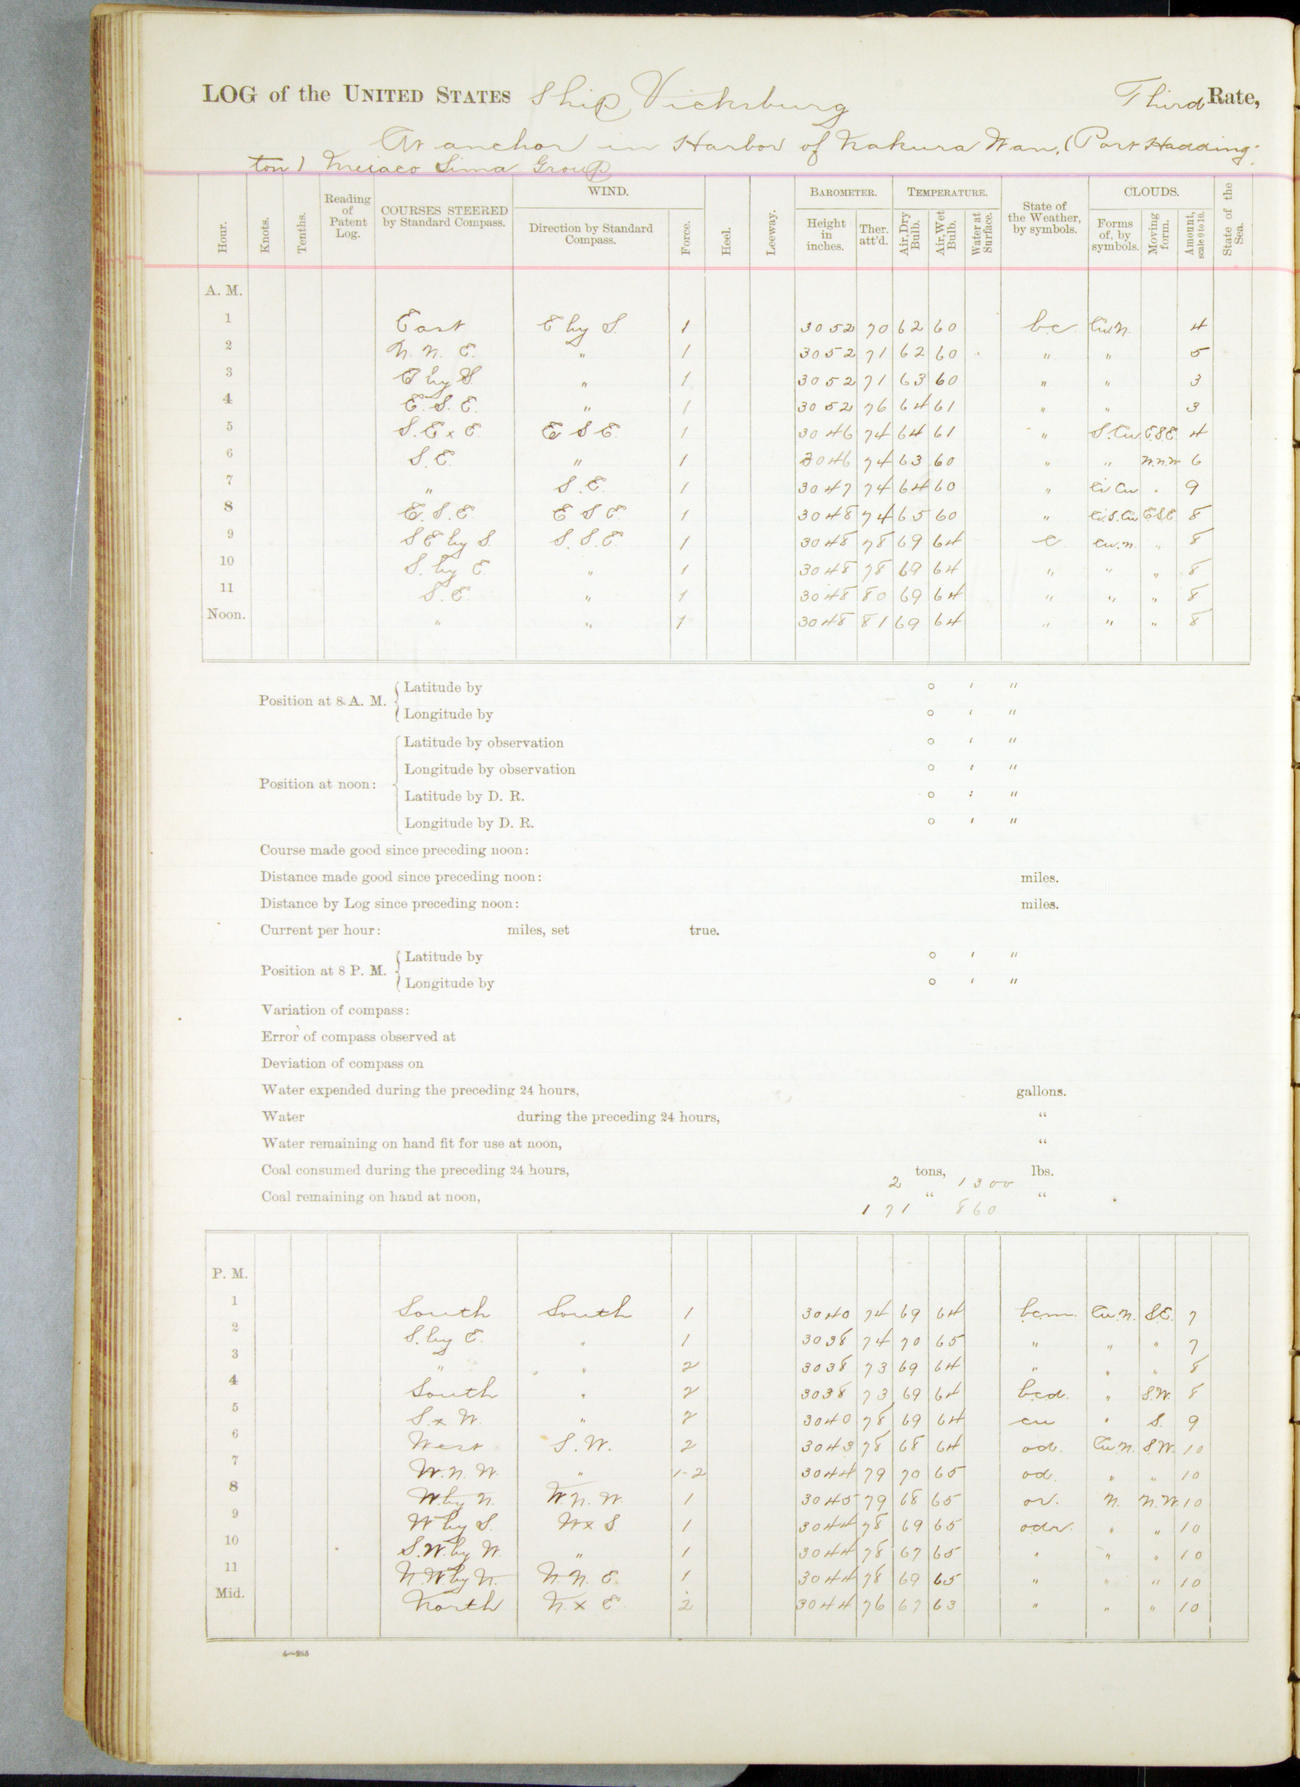 LOG of the UNITED STATES Ship Vicksburg Third Rate,
At anchor in Harbor of Nakura Wan, (Port Hadding-
ton) Meiaco Sima Group
Hour. Knots. Tenths. Reading of Patent Log. COURSES STEERED by Standard Compass. WIND. Direction by Standard Compass. Force. Heel. Leeway. BAROMETER. Height in inches. Ther. att'd. TEMPERATURE. Air, Dry Bulb. Air, Wet Bulb. Water at Surface. State of the Weather, by symbols. CLOUDS. Forms of, by symbols. Moving form. Amount, scale 0 to 10. State of the Sea.
A. M.
1 East E by S 1 30 52 70 62 60 b.c Cu.N. 4
2 N. N. E. " 1 30 52 71 62 60 " " 5
3 E by S " 1 30 52 71 63 60 " " 3
4 E. S. E. " 1 30 52 76 64 61 " " 3
5 S. E x E. E S E. 1 30 46 74 64 61 " S.Cu E.S.E. 4
6 S. E. " 1 30 46 74 63 60 " " N.N.W 6
7 " S. E. 1 30 47 74 64 60 " Ci Cu " 9
8 E. S. E. E S E. 1 30 48 74 65 60 " Ci.S.Cu E.S.E 8
9 S E by S. S. S. E. 1 30 48 78 69 64 c. Cu.N. " 8
10 S. by E. " 1 30 48 78 69 64 " " " 8
11 S. E. " 1 30 48 80 69 64 " " " 8
Noon. " " 1 30 48 81 69 64 " " " 8
Position at 8 A. M. Latitude by ° ′ ″
Longitude by ° ′ ″
Position at noon: Latitude by observation ° ′ ″
Longitude by observation ° ′ ″
Latitude by D. R. ° ′ ″
Longitude by D. R. ° ′ ″
Course made good since preceding noon:
Distance made good since preceding noon: miles.
Distance by Log since preceding noon: miles.
Current per hour: miles, set true.
Position at 8 P. M. Latitude by ° ′ ″
Longitude by ° ′ ″
Variation of compass:
Error of compass observed at
Deviation of compass on
Water expended during the preceding 24 hours, gallons.
Water during the preceding 24 hours, "
Water remaining on hand fit for use at noon, "
Coal consumed during the preceding 24 hours, 2 tons, 1300 lbs.
Coal remaining on hand at noon, 171 " 860 "
P. M.
1 South South 1 30 40 74 69 64 bcm. Cu.N. S.E. 7
2 S. by E. " 1 30 38 74 70 65 " " " 7
3 " " 2 30 38 73 69 64 " " " 8
4 South " 2 30 38 73 69 64 bcd. " S.W. 8
5 S. x W. " 2 30 40 78 69 64 " S. 9
6 West S. W. 2 30 43 78 68 64 od. Cu N. S.W. 10
7 W. N. W. " 1-2 30 44 79 70 65 od. " " 10
8 W. by N. W. N. W. 1 30 45 79 68 65 or. N. N.W. 10
9 W by S. W x S 1 30 44 78 69 65 odr. " " 10
10 S. W. by W. " 1 30 44 78 67 65 " " " 10
11 N. W. by N. N. N. E. 1 30 44 78 69 65 " " " 10
Mid. North N. x E 2 30 44 76 67 63 " " " 10